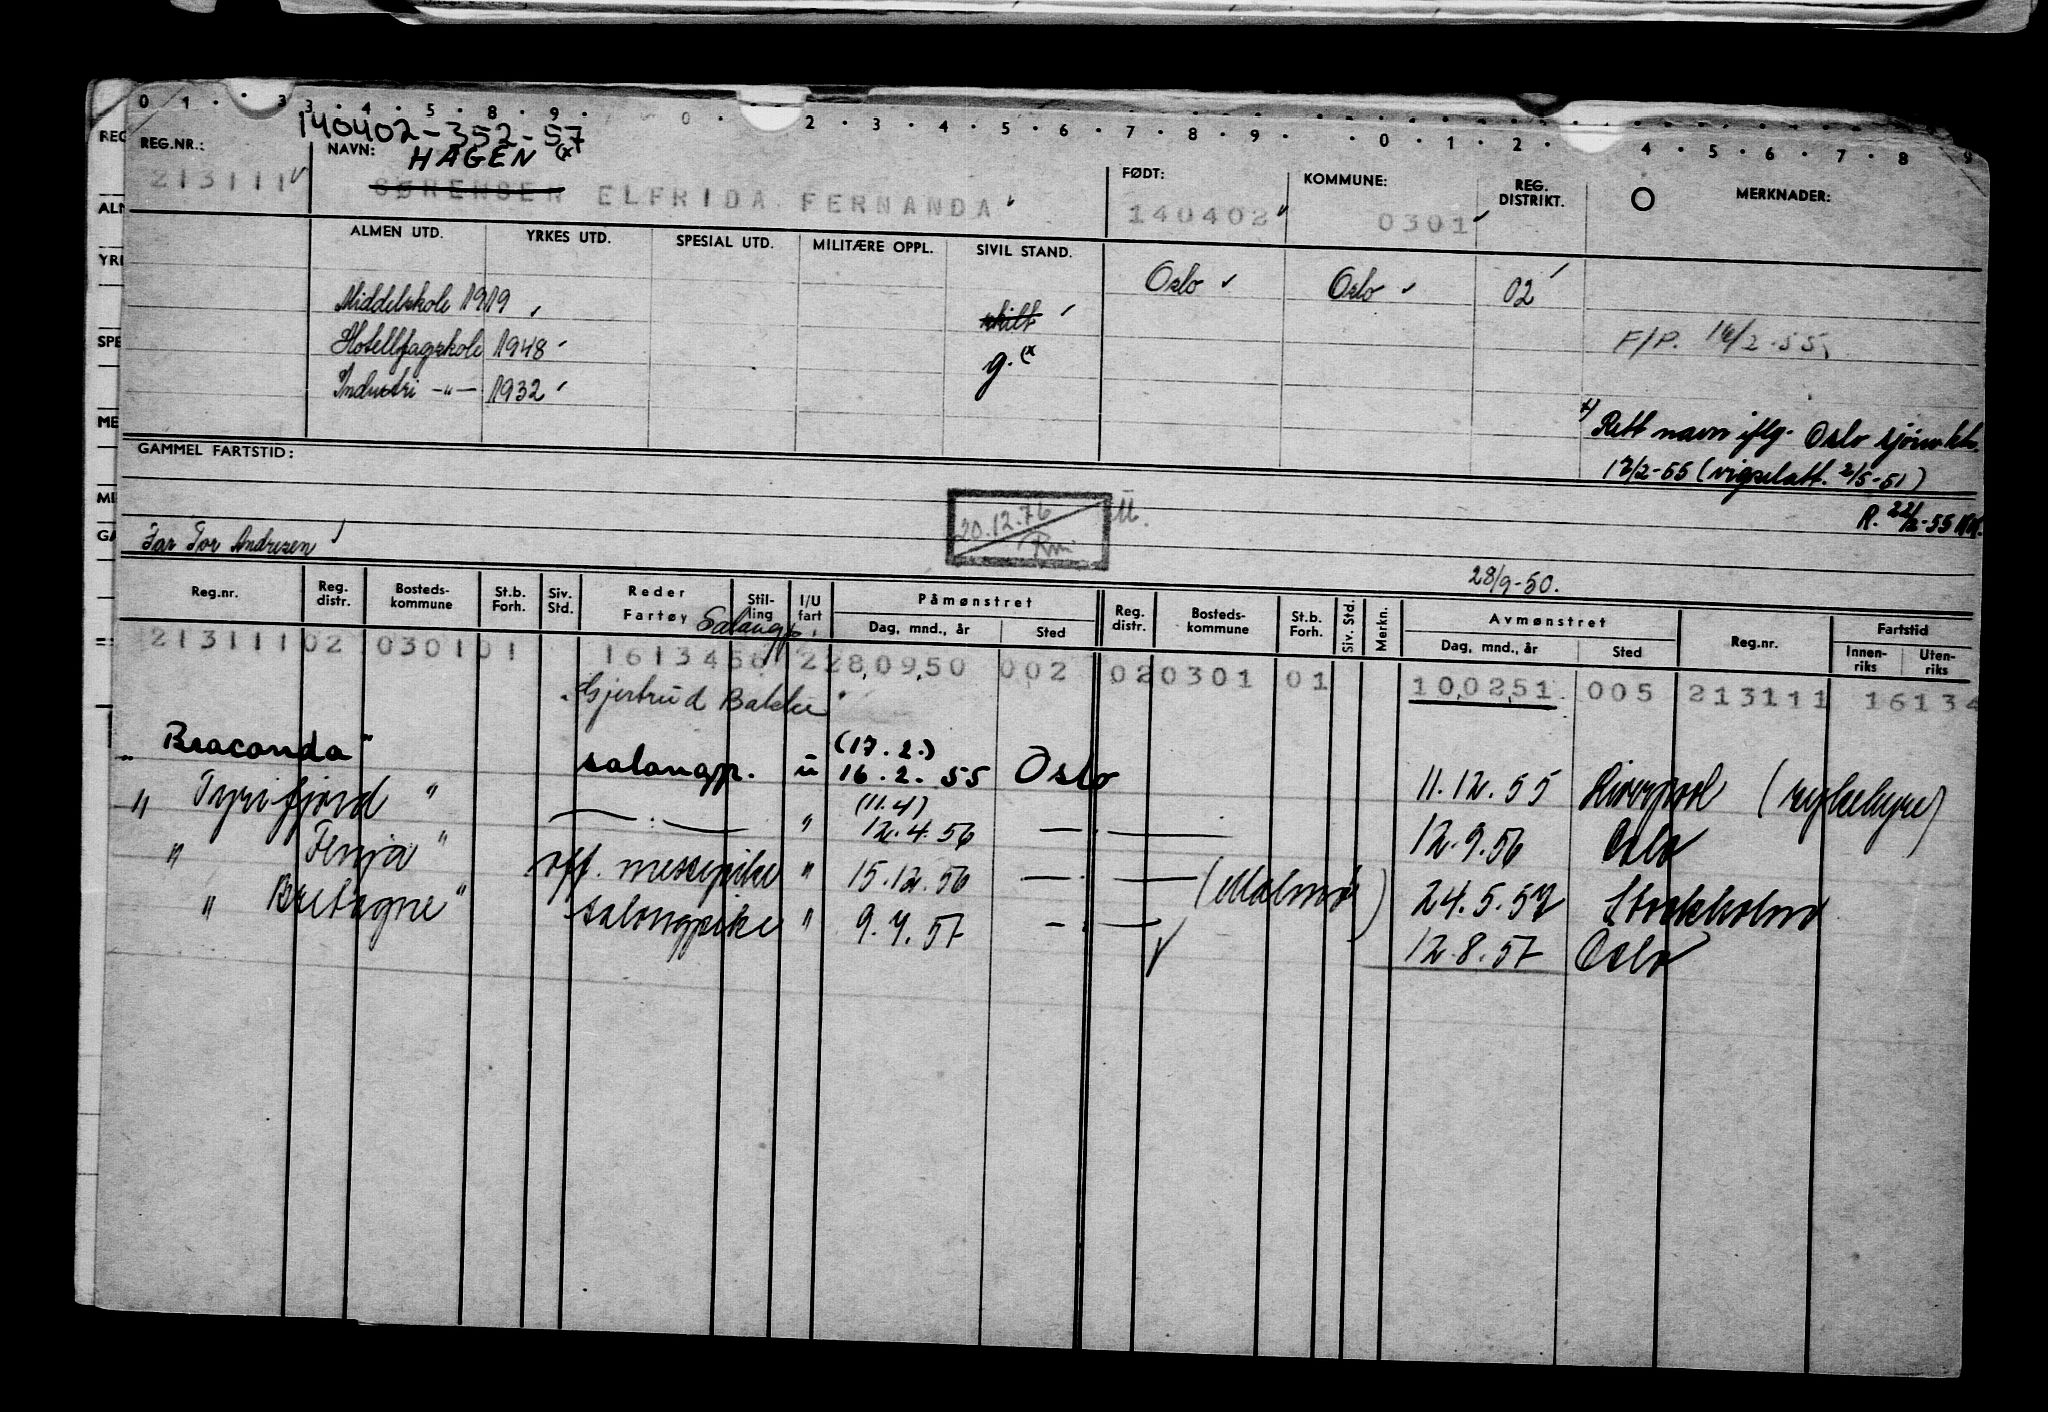 0 1 . . 3 3 . 4 . 5 . 8 . 9 . 0 . 2 . 3 . 4 . 5 . 6 . 7 . 8 . 9 . . 0 . 1 . 2 . 4 . 5 . 6 . 7 . 8 9
140402-352-57
REG.NR.: NAVN: HAGEN (x FØDT: KOMMUNE: REG. DISTRIKT. MERKNADER:
213111 SØRENSEN ELFRIDA FERNANDA 140402 0301
ALMEN UTD. YRKES UTD. SPESIAL UTD. MILITÆRE OPPL. SIVIL STAND.
Oslo Oslo 02
Middelskole 1919 skilt
Hotellfagskole 1948 g. (x F/P. 16/2-55
Industri -"- 1932
x) Rett navn iflg. Oslo
16/2-55 (vigselatt. 2/5-51)
GAMMEL FARTSTID:
R. 22/2-55
20.12.76 U.
Far Tor Andresen
28/9-50.
Reg.nr. Reg. distr. Bosteds-kommune St.b. Forh. Siv. Std. Reder Fartøy Stil-ling I/U fart Påmønstret Reg. distr. Bosteds-kommune St.b. Forh. Siv. Std. Merkn. Avmønstret Reg.nr. Fartstid
Dag, mnd., år Sted Dag, mnd., år Sted Innen-riks Uten-riks
Salongp.
213111 02 0301 01 1613456 2 28,09,50 002 02 0301 01 10,02,51 005 213111 16134
"Gjertrud Bakke"
"Braconda" salongp. u (17.2.) 16.2.55 Oslo 11.12.55 Liverpool (sykehyre)
" Tyrifjord " —:— " (11.4) 12.4.56 —:— 12.9.56 Oslo
" Fenja " off. messepike " 15.12.56 —:— (Malmø) 24.5.57 Stockholm
" Bretagne " salongpike " 9.7.57 —:— 12.8.57 Oslo